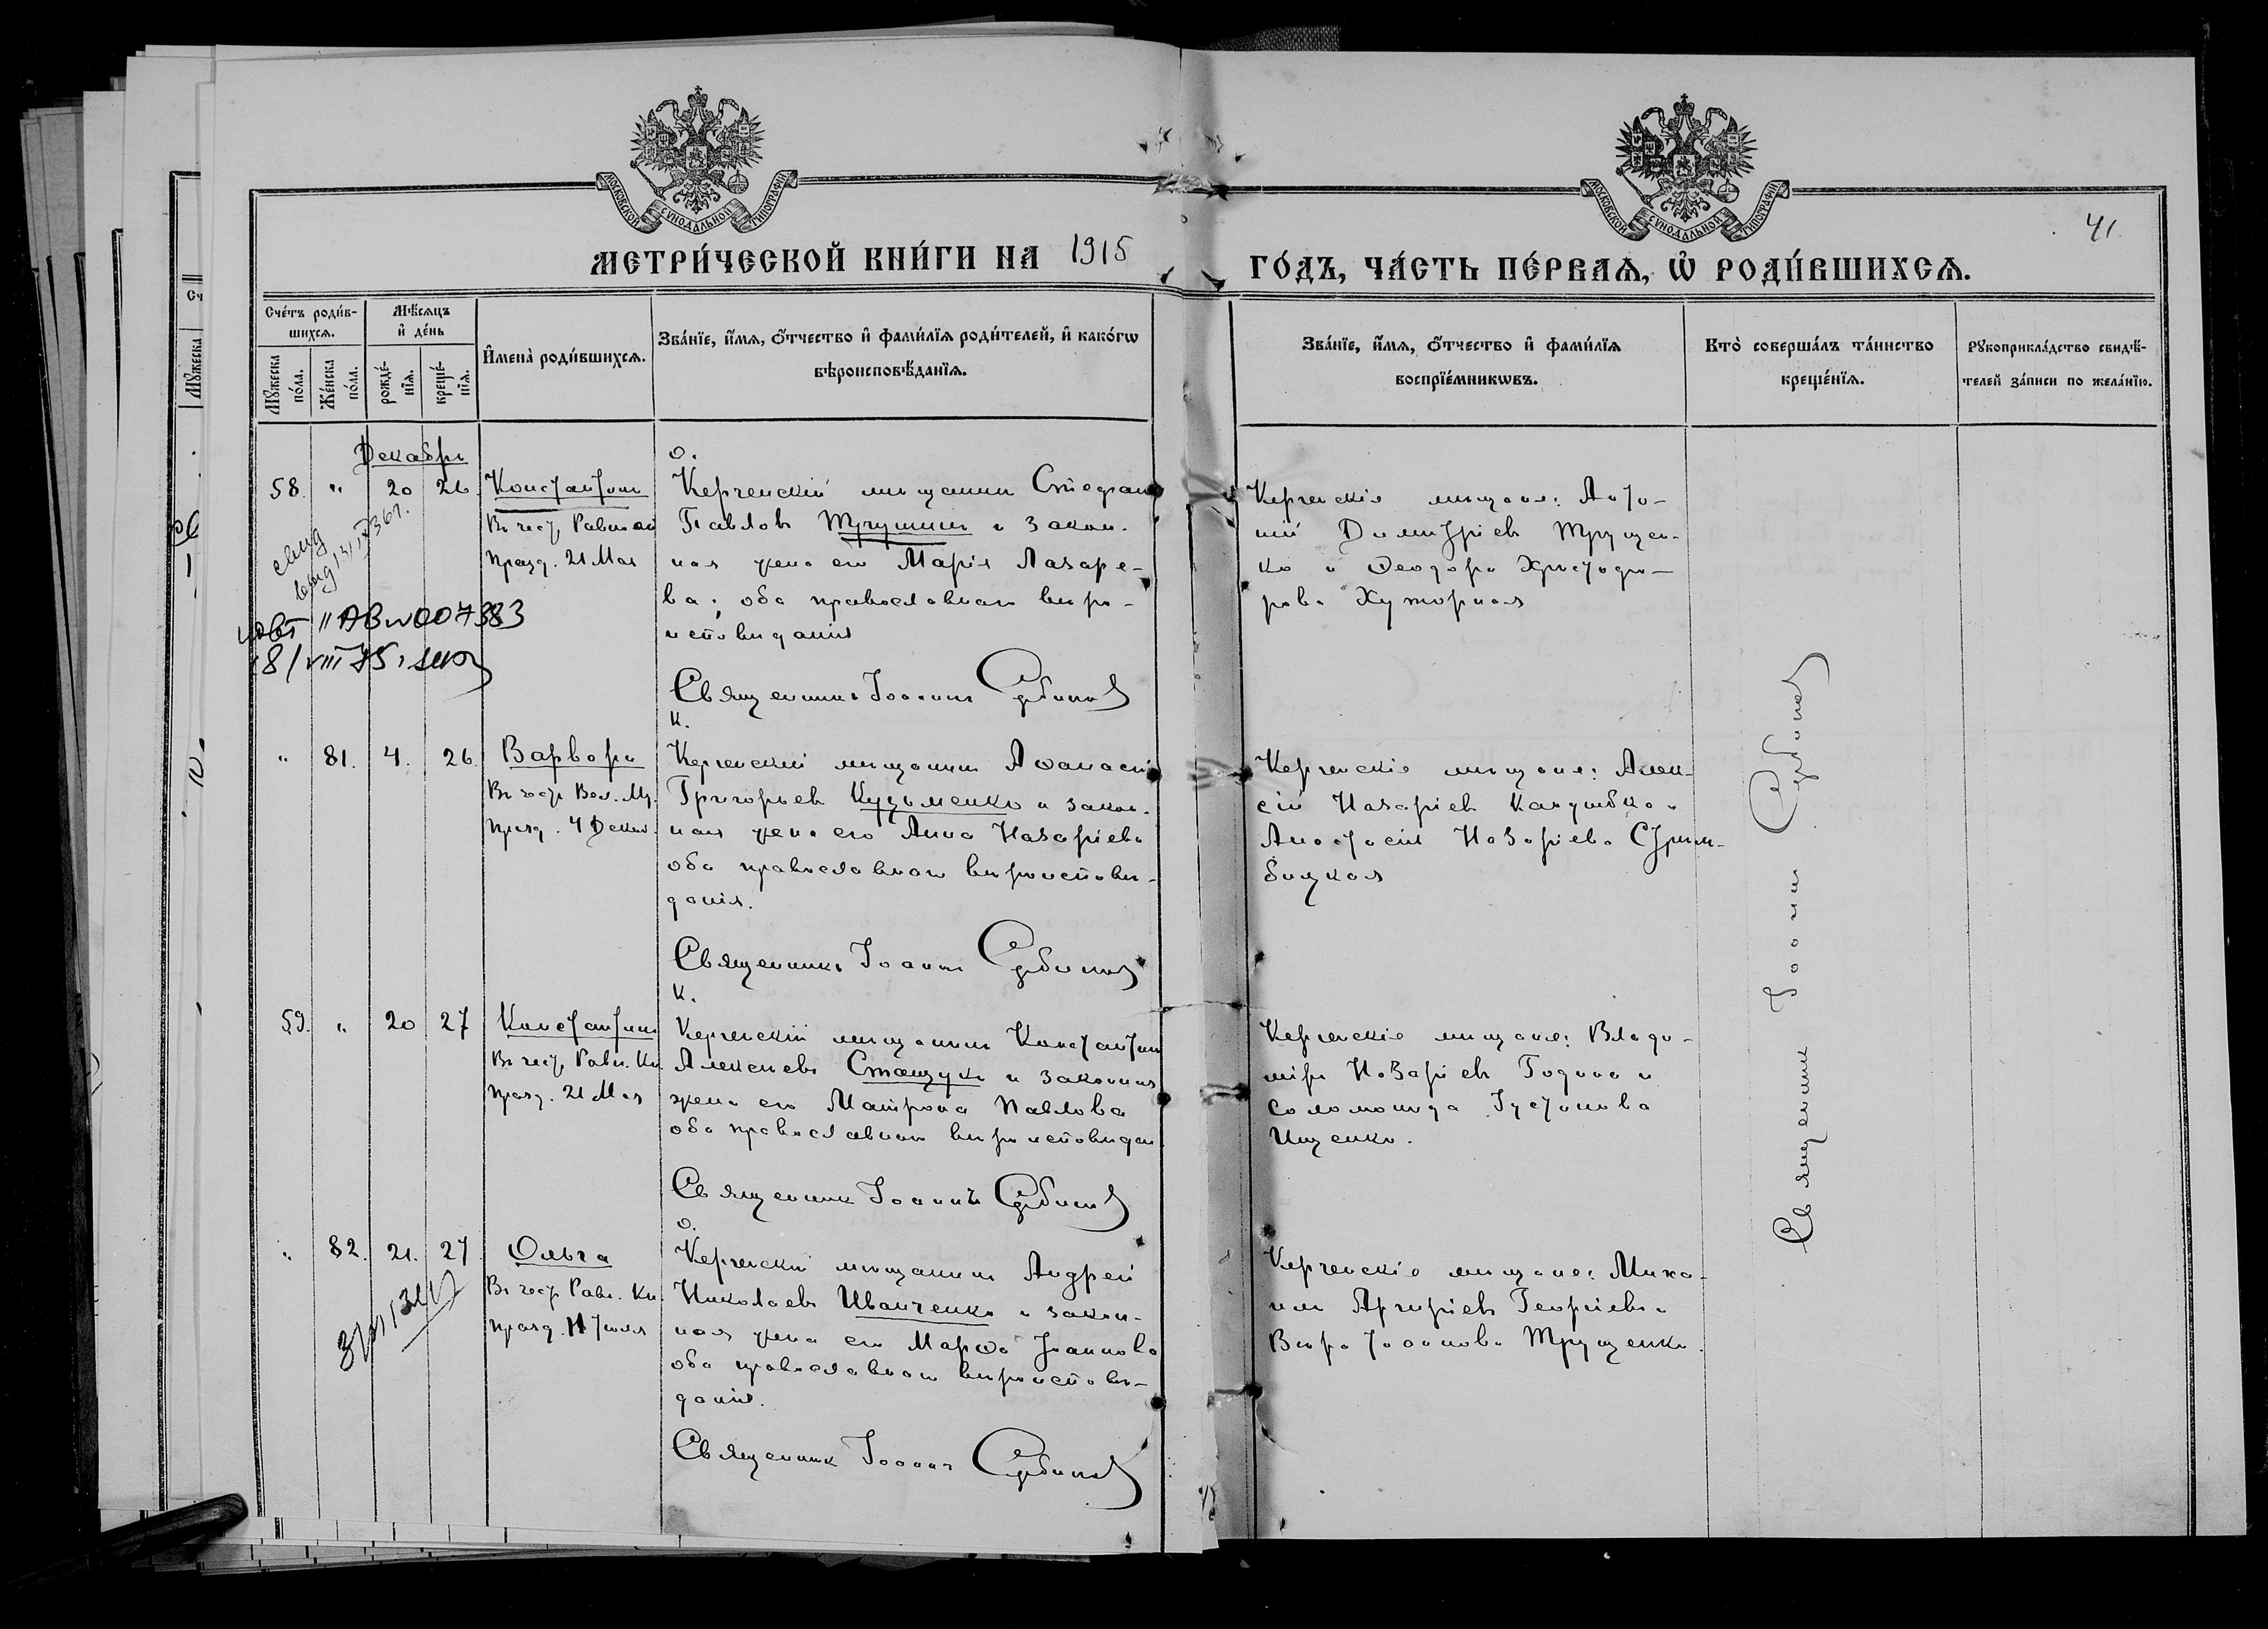 МОСКОВСКОЙ СѴНОДАЛЬНОЙ ТИПОГРАФІИ
МОСКОВСКОЙ СѴНОДАЛЬНОЙ ТИПОГРАФІИ
41.
МЕТРИ́ЧЕСКОЙ КНИ́ГИ НА 1915
ГО́ДЪ, ЧА́СТЬ ПЕ́РВАѦ, Ѽ РОДИ́ВШИХСѦ.
Сче́тъ роди́в-
шихсѧ.
Мꙋжеска
по́ла.
Же́нска
по́ла.
Мѣ́сѧцъ
и҆ де́нь
рожде́-
нїѧ.
креще́-
нїѧ.
И҆мена̀ роди́вшихсѧ.
Зва́нїе, и҆́мѧ, ѻ҆́тчество и҆ фами́лїѧ роди́телей, и҆ како́гѡ
вѣроисповѣ́данїѧ.
Зва́нїе, и҆́мѧ, ѻ҆́тчество и҆ фами́лїѧ
воспрїе́мникѡвъ.
Кто̀ соверша́лъ та́инство
креще́нїѧ.
Рꙋкоприкла́дство свидѣ́-
телей за́писи по жела́нїю.
Декабрь
58. " 20 26. Константин
Въ чест. Равноап
празд. 21 Мая
о.
Керченскій мещанин Стефан
Павловъ Трушин и закон-
ная жена его Марія Лазаре-
ва; оба православнаго веро-
исповеданія
Священникъ Іоаннъ Сербинов
Керченскіе мещане: Анто-
ній Димитріевъ Трущен-
ко и Феодора Христофо-
рова Хуторная
" 81. 4. 26. Варвара
Въ честь Вел. Му.
празд. 4 Декаб.
к.
Керченскій мещанин Афанасій
Григорьевъ Кузьменко и закон-
ная жена его Анна Назаріева
оба православнаго вероиспове-
данія.
Священникъ Іоаннъ Сербинов
Керченскіе мещане: Алек-
сій Назаріевъ и
Анастасія Назаріева
59. " 20 27 Константин
Въ чест. Равн. Кн.
празд. 21 Мая
к.
Керченскій мещанин Константин
Алексеевъ Сташук и законная
жена его Матрона Павлова
оба православнаго вероисповедан.
Священник Іоаннъ Сербинов
Керченскіе мещане: Влади-
міръ Назаріевъ Година и
Соломонида Іустинова
Ищенко.
" 82. 21. 27 Ольга
Въ чест. Равн. Кн.
празд. 11 Іюля
о.
Керченскій мещанин Андрей
Николаевъ Иванченко и закон-
ная жена его Марфа Іоаннова
оба православнаго вероиспове-
данія.
Священник Іоаннъ Сербинов
Керченскіе мещане: Миха-
ил Аргиріевъ Георгіевъ и
Вера Іоаннова Трущенко.
Священник Іоанн Сербинов